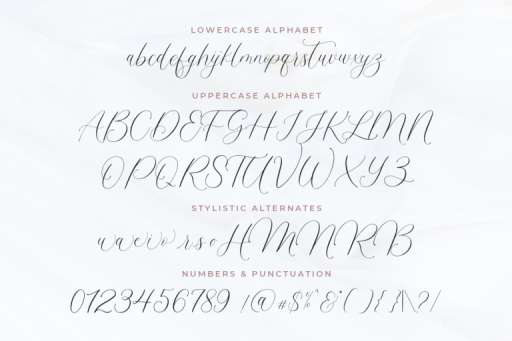 LOWERCASE ALPHABET
abcdefghijklmnopqrstuvwxyz
UPPERCASE ALPHABET
ABCDEFGHIJKLMN
OPQRSTUVWXYZ
STYLISTIC ALTERNATES
HMNRB
NUMBERS & PUNCTUATION
0123456789 !@#$%^&*(){}|\?/